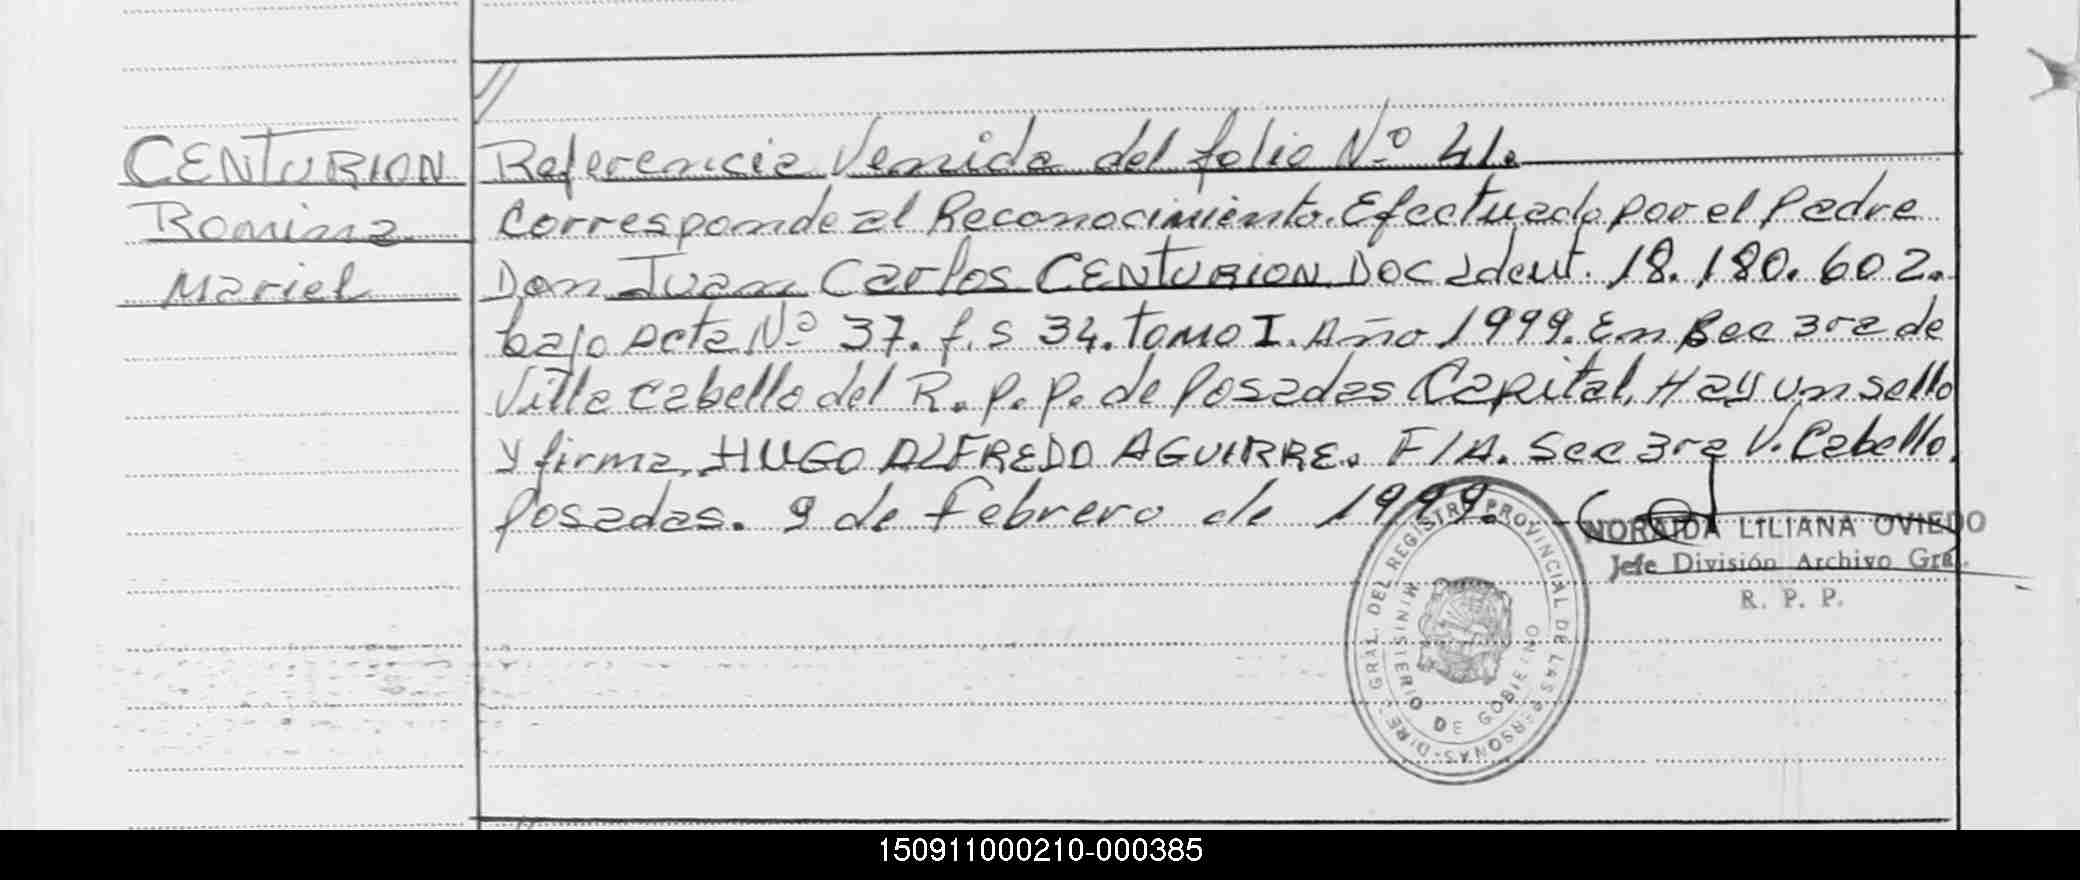 CENTURION
Romina
Mariel
Referencia Venida del folio Nº 41.
Corresponde al Reconocimiento. Efectuado por el Padre
Don Juan Carlos CENTURION Doc Ident. 18.180.602.
bajo Acta Nº 37. f.s 34. tomo I. Año 1999. En Sec 3ra de
Villa Cabello del R.P.P. de Posadas Capital, Hay un sello
y firma, HUGO ALFREDO AGUIRRE. F/A. Sec 3ra V. Cabello.
Posadas. 9 de Febrero de 1999.
NORAIDA LILIANA OVIEDO
Jefe División Archivo Gral.
R. P. P.
DIREC. GRAL. DEL REGISTRO PROVINCIAL DE LAS PERSONAS
MINISTERIO DE GOBIERNO
150911000210-000385